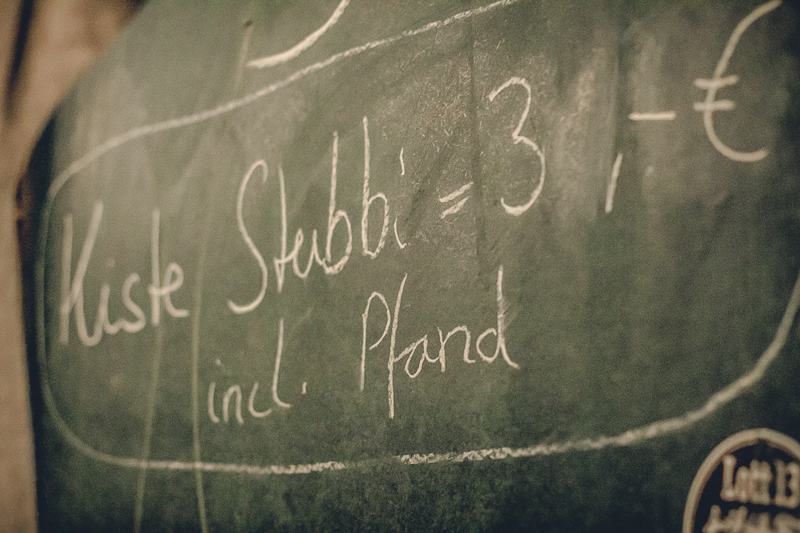 Kiste Stubbi = 3,- €
incl. Pfand
Lott 13